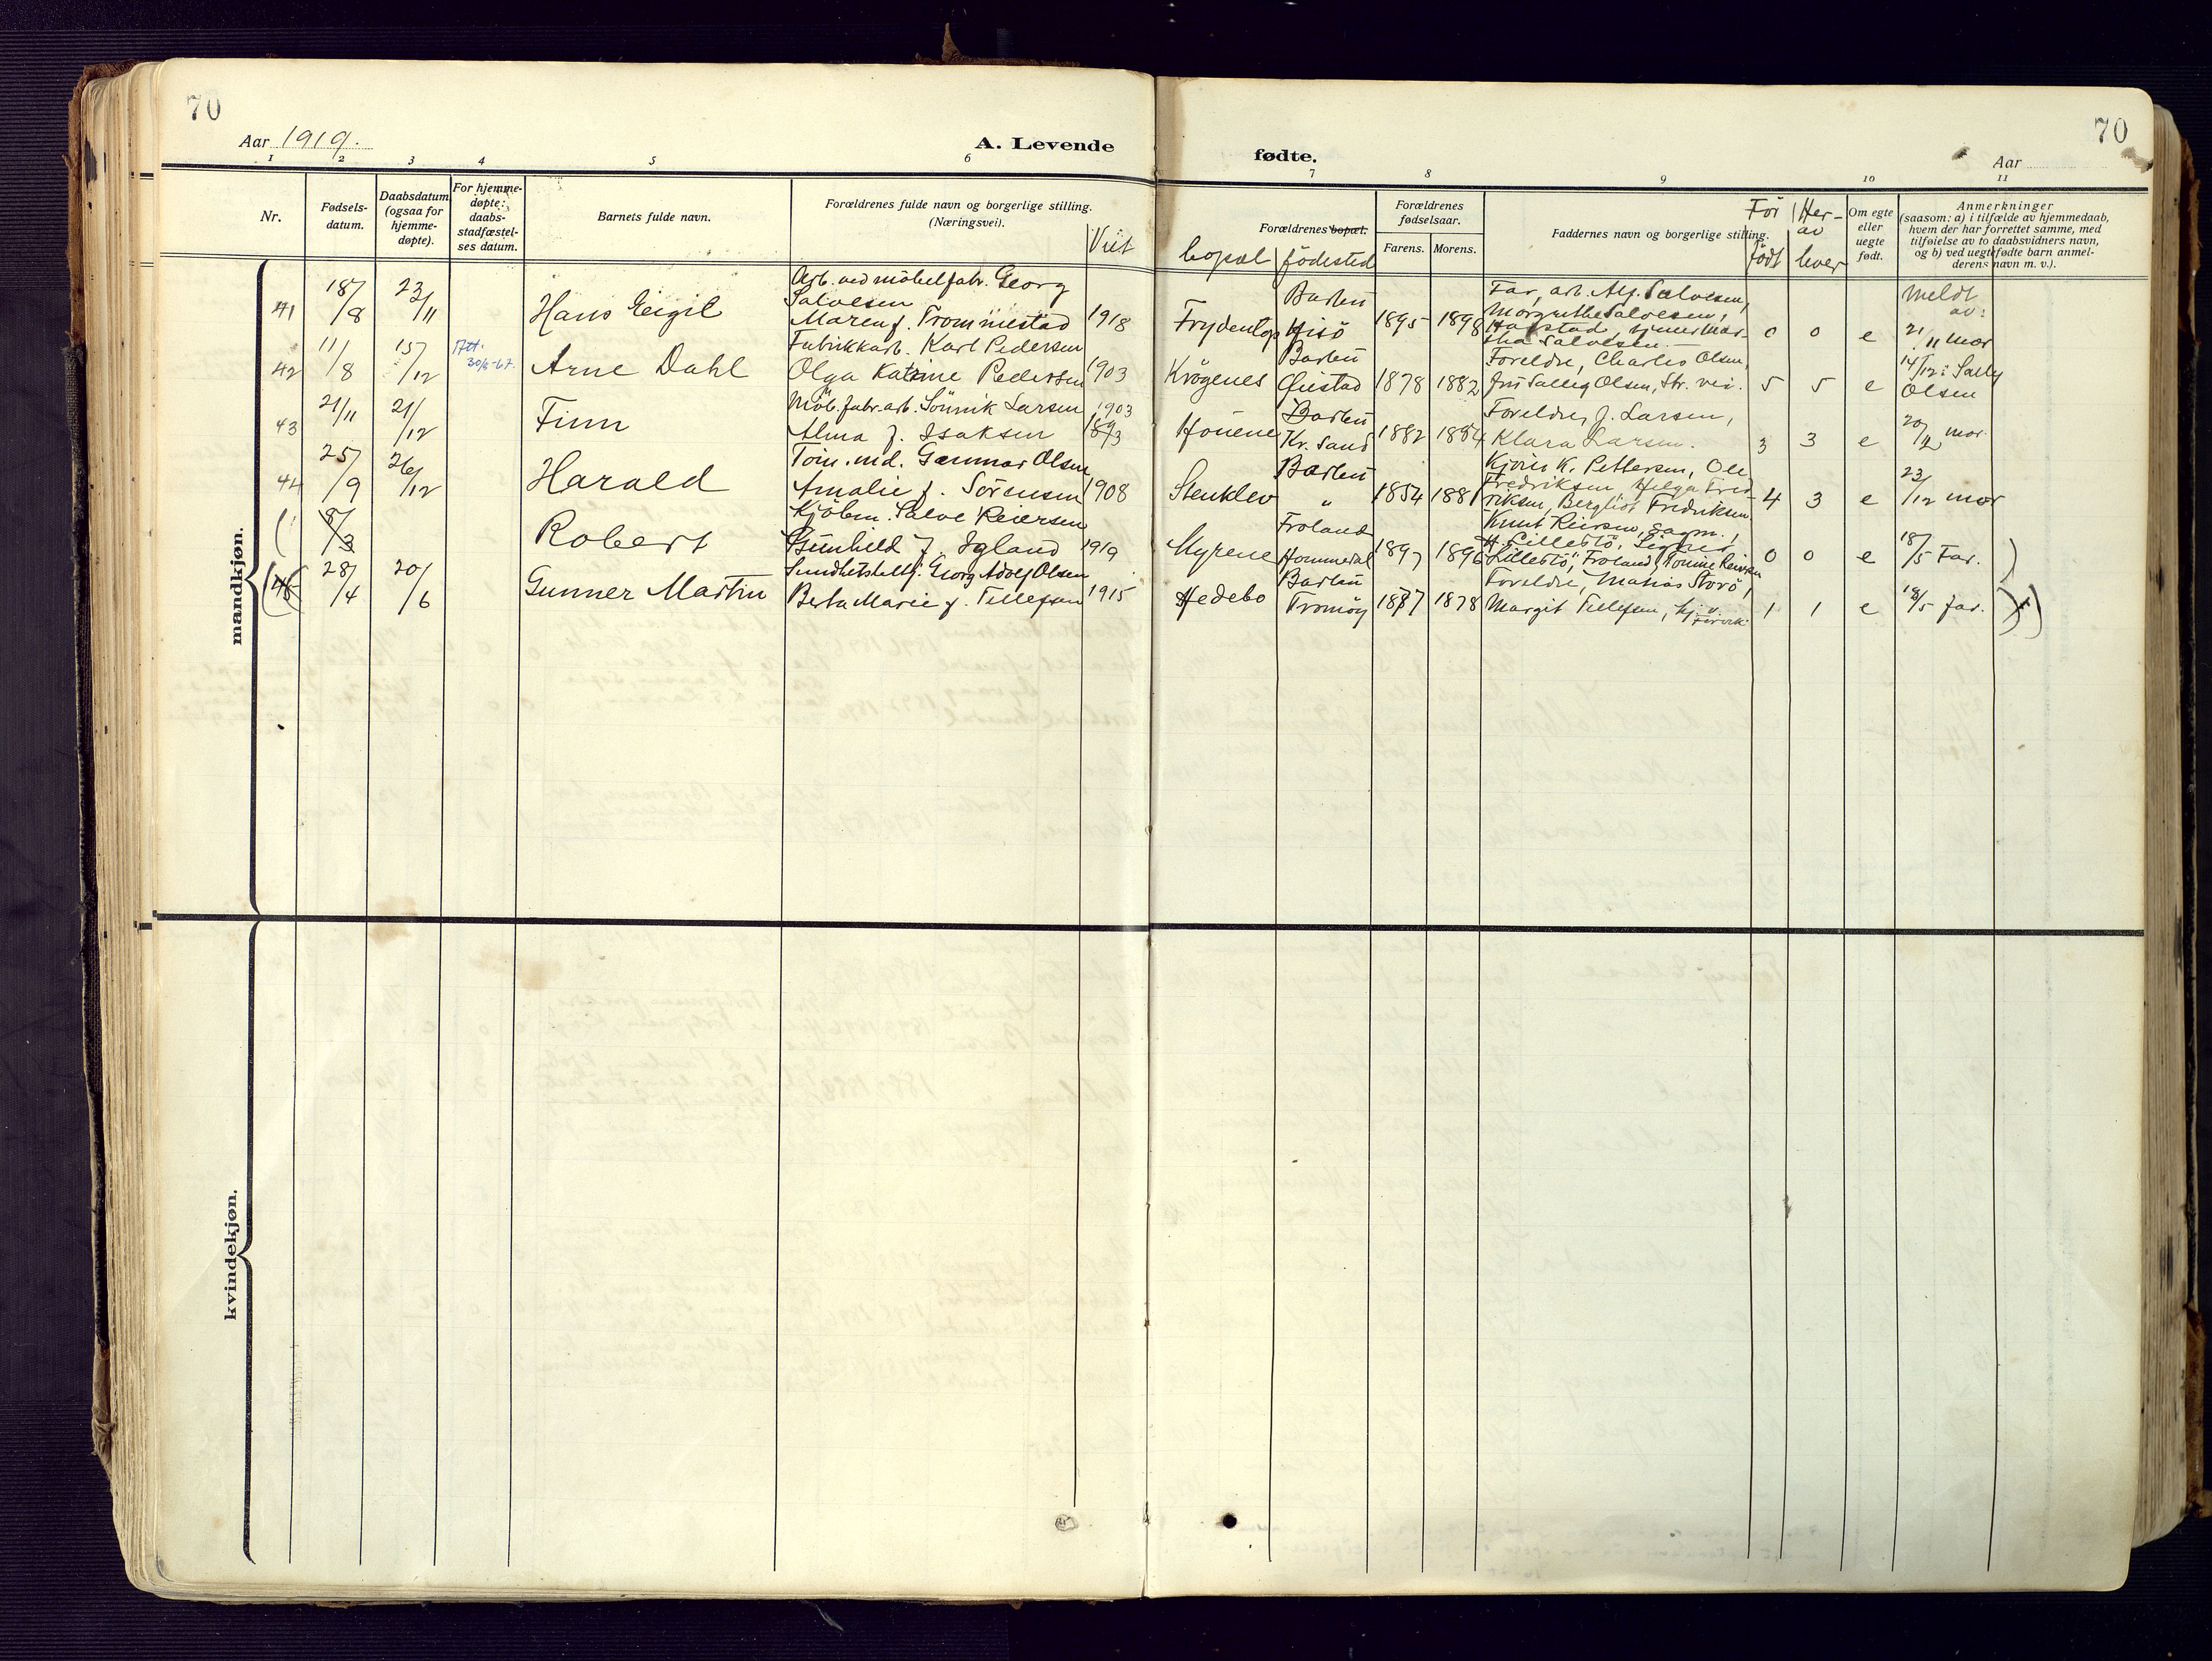 70
70
Aar 1919.
A. Levende
fødte.
Aar
1 2 3 4 5 6 7 8 9 10 11
Nr.
Fødsels-
datum.
Daabsdatum
(ogsaa for
hjemme-
døpte).
For hjemme-
døpte:
daabs-
stadfæstel-
ses datum.
Barnets fulde navn.
Forældrenes fulde navn og borgerlige stilling.
(Næringsvei).
Viet
Forældrenes bopæl.
bopæl födested
Forældrenes
fødselsaar.
Farens. Morens.
Faddernes navn og borgerlige stilling.
För
födt
Her-
av
lever
Om egte
eller
uegte
født.
Anmerkninger
(saasom: a) i tilfælde av hjemmedaab,
hvem der har forrettet samme, med
tilføielse av to daabsvidners navn,
og b) ved uegtefødte barn anmel-
derens navn m. v.).
mandkjøn.
41 18/8 23/11 Hans Eigil
Arb. ved möbelfabr. Georg
Salvesen
Maren f. Trommestad 1918
Barbu
Hisö 1895 1898
Far, arb. Alf. Salvesen,
Margrethe Salvesen,
0 0 e
Meldt
av:
21/11 mor
42 11/8 15/12
Att.
30/6-67.
Arne Dahl
Fabrikkarb. Karl Pedersen
Olga Katrine Pedersen 1903
Krögenes
Barbu
Öiestad 1878 1882
Foreldre, Charles Olsen,
Olsen, Str. vei.
5 5 e
14/12: Sally
Olsen
43 21/11 21/12 Finn
Möb. fabr. arb. Larsen 1903
Alma f. Isaksen
Barbu
Kr. Sand 1882 1884
Foreldre, J. Larsen,
Klara Larsen.
3 3 e
mor
44 25/9 26/12 Harald
Gunnar Olsen
Amalie f. Sörensen 1908
Stenklev
Barbu
" 1884 1881
K. Pettersen, Ole
Fredriksen, Helga Fred-
riksen, Bergliot Fredriksen
4 3 e
23/12 mor
8/3 Robert
Kjöbm. Salve Reiersen
Gunhild f. Igland 1919
Myrene
Froland
Hommedal 1897 1896
Knut Reiersen,
Lillestö, Froland,
0 0 e
18/5 Far.
45 28/4 20/6 Gunner Martin
Georg Adolf Olsen
Berta Marie f. Tellefsen 1915
Hedebo
Barbu
Tromöy 1887 1878
Foreldre, Matias Storö,
Margit Tellefsen,
1 1 e
18/5 far.
kvindekjøn.